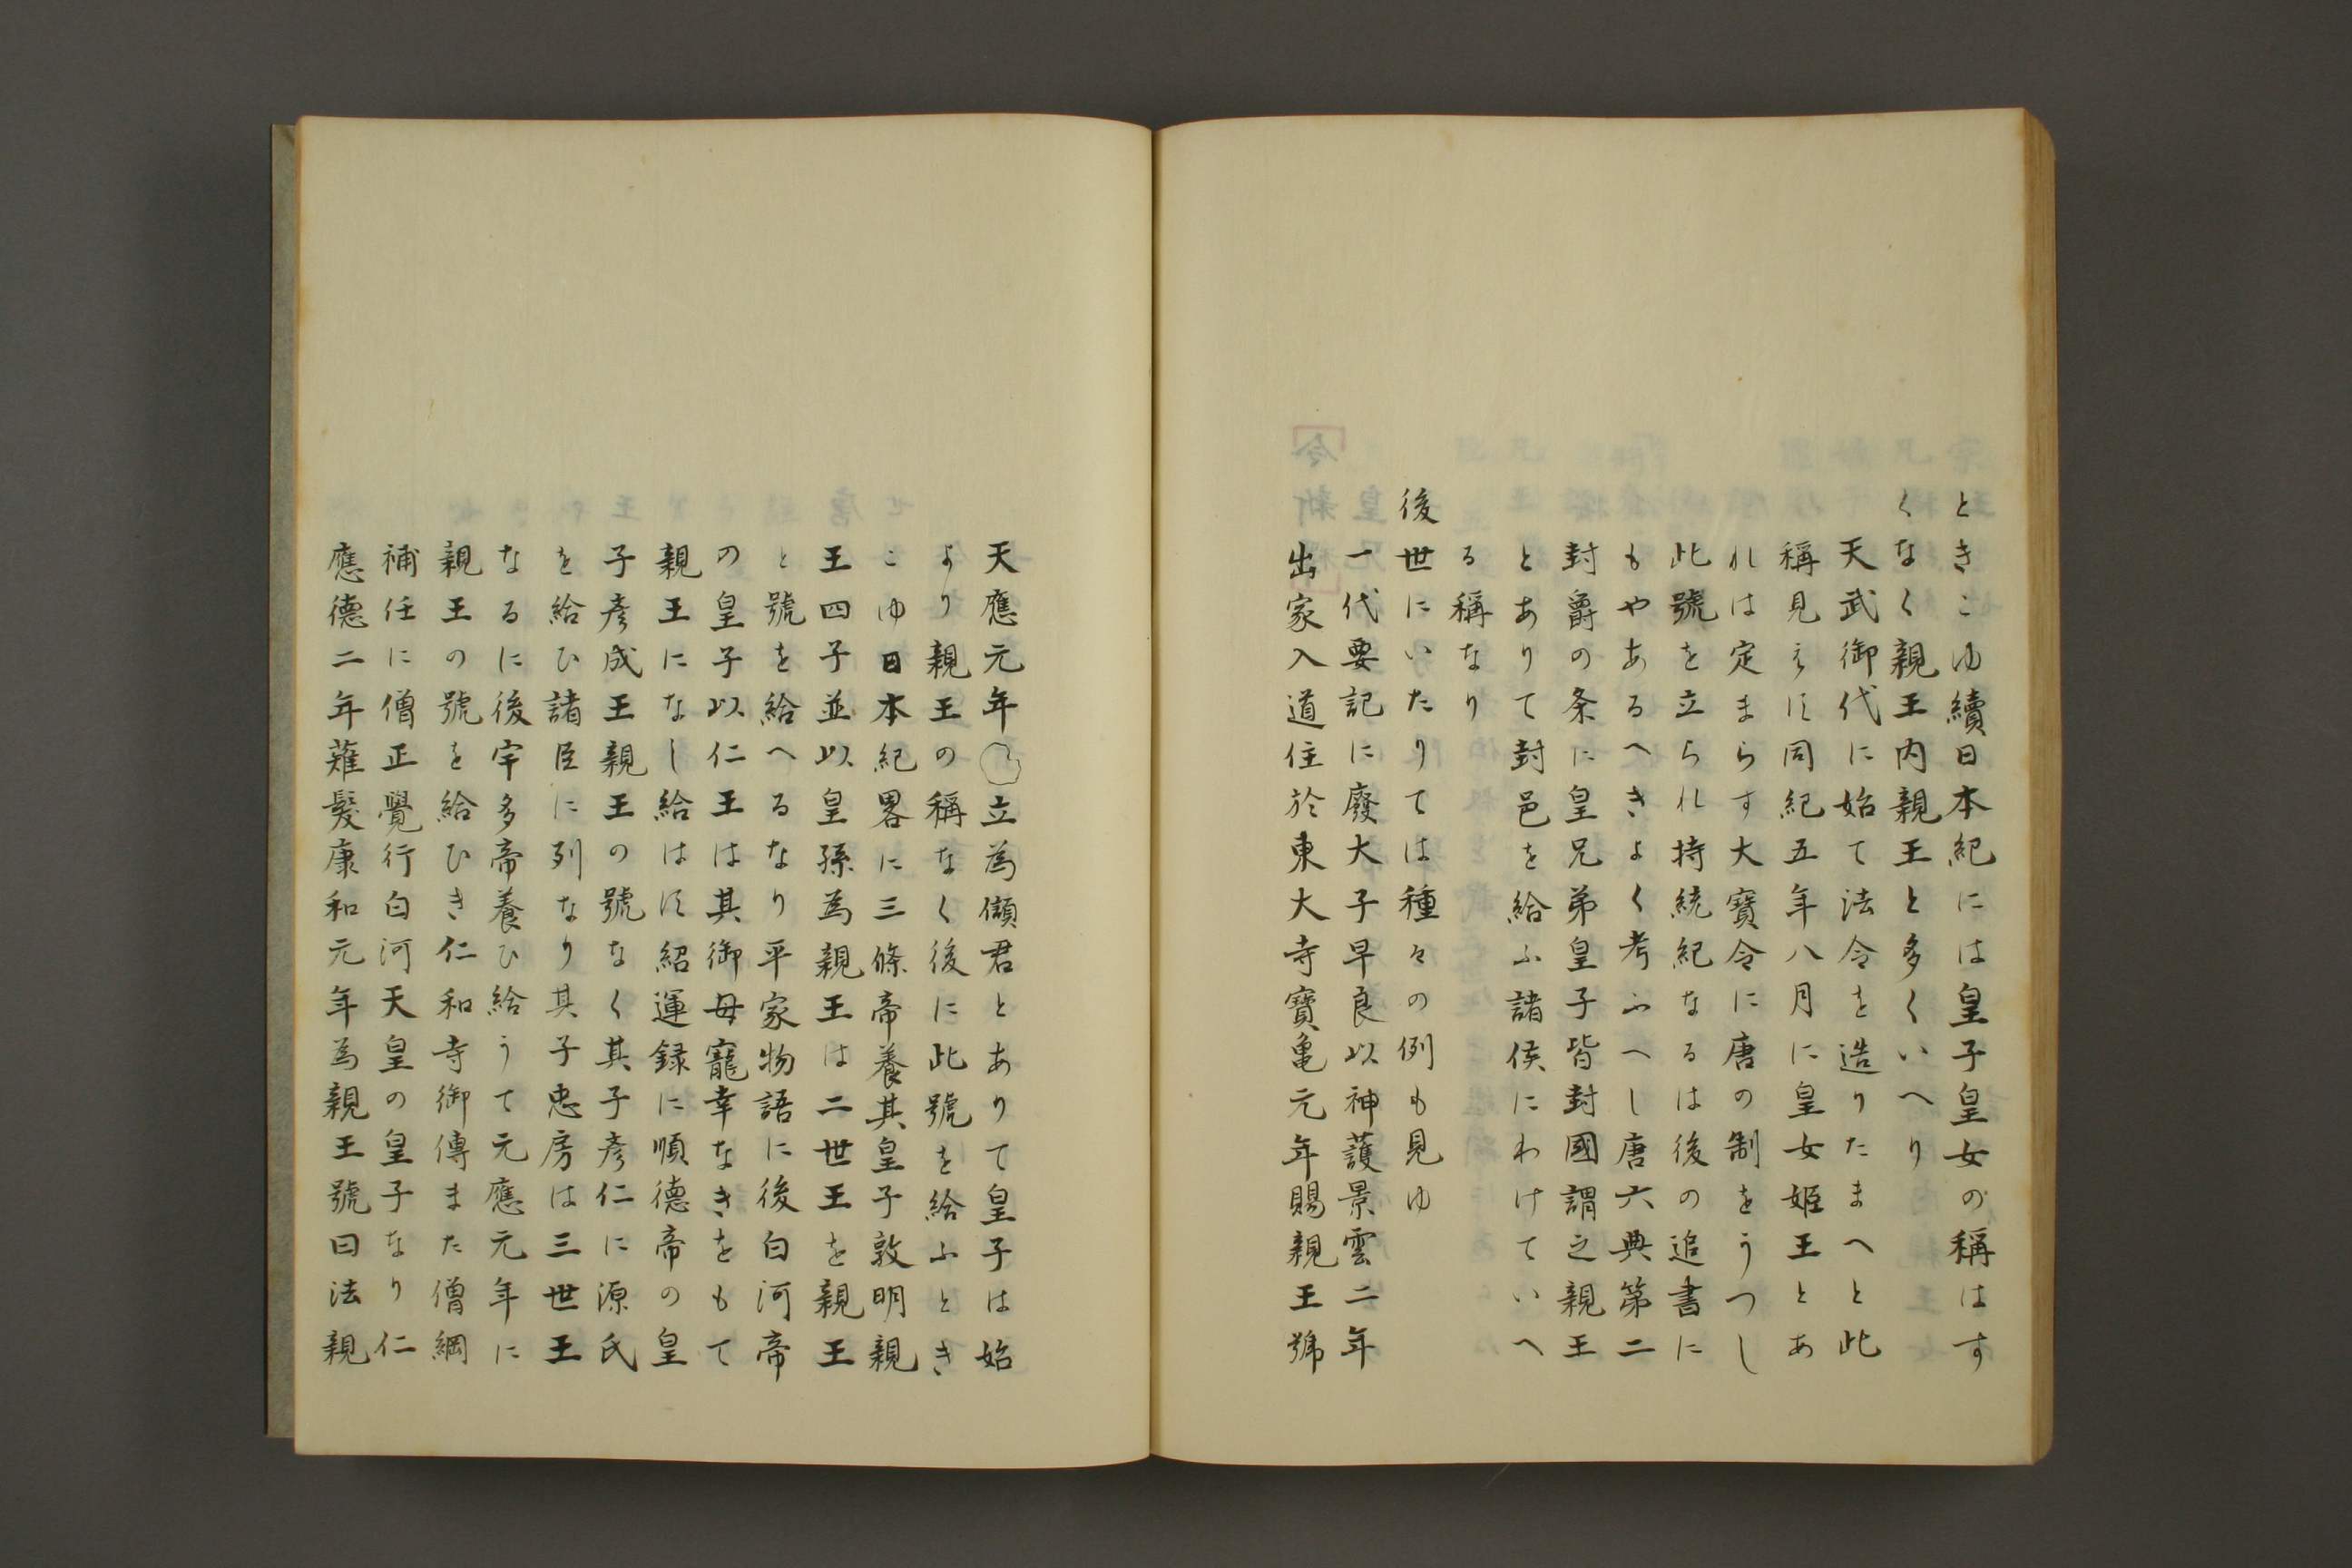 ときこゆ續日本紀には皇子皇女の稱はす
くなく親王内親王と多くいへり
天武御代に始て法令を造りたまへと此
稱見えす同紀五年八月に皇女姫王とあ
れは定まらす大寶令に唐の制をうつし
此號を立られ持統紀なるは後の追書に
もやあるへきよく考ふへし唐六典第二
封爵の条に皇兄弟皇子皆封國謂之親王
とありて封邑を給ふ諸侯にわけていへ
る稱なり
後世にいたりては種々の例も見ゆ
一代要記に廢大子早良以神護景雲二年
出家入道住於東大寺寶亀元年賜親王號
天應元年立為儲君とありて皇子は始
より親王の稱なく後に此號を給ふとき
こゆ日本紀畧に三條帝養其皇子敦明親
王四子並以皇孫為親王は二世王を親王
と號を給へるなり平家物語に後白河帝
の皇子以仁王は其御母寵幸なきをもて
親王になし給はす紹運録に順德帝の皇
子彦成王親王の號なく其子彦仁に源氏
を給ひ諸臣に列なり其子忠房は三世王
なるに後宇多帝養ひ給うて元應元年に
親王の號を給ひき仁和寺御傳また僧綱
補任に僧正覺行白河天皇の皇子なり仁
應德二年薙髮康和元年為親王號曰法親